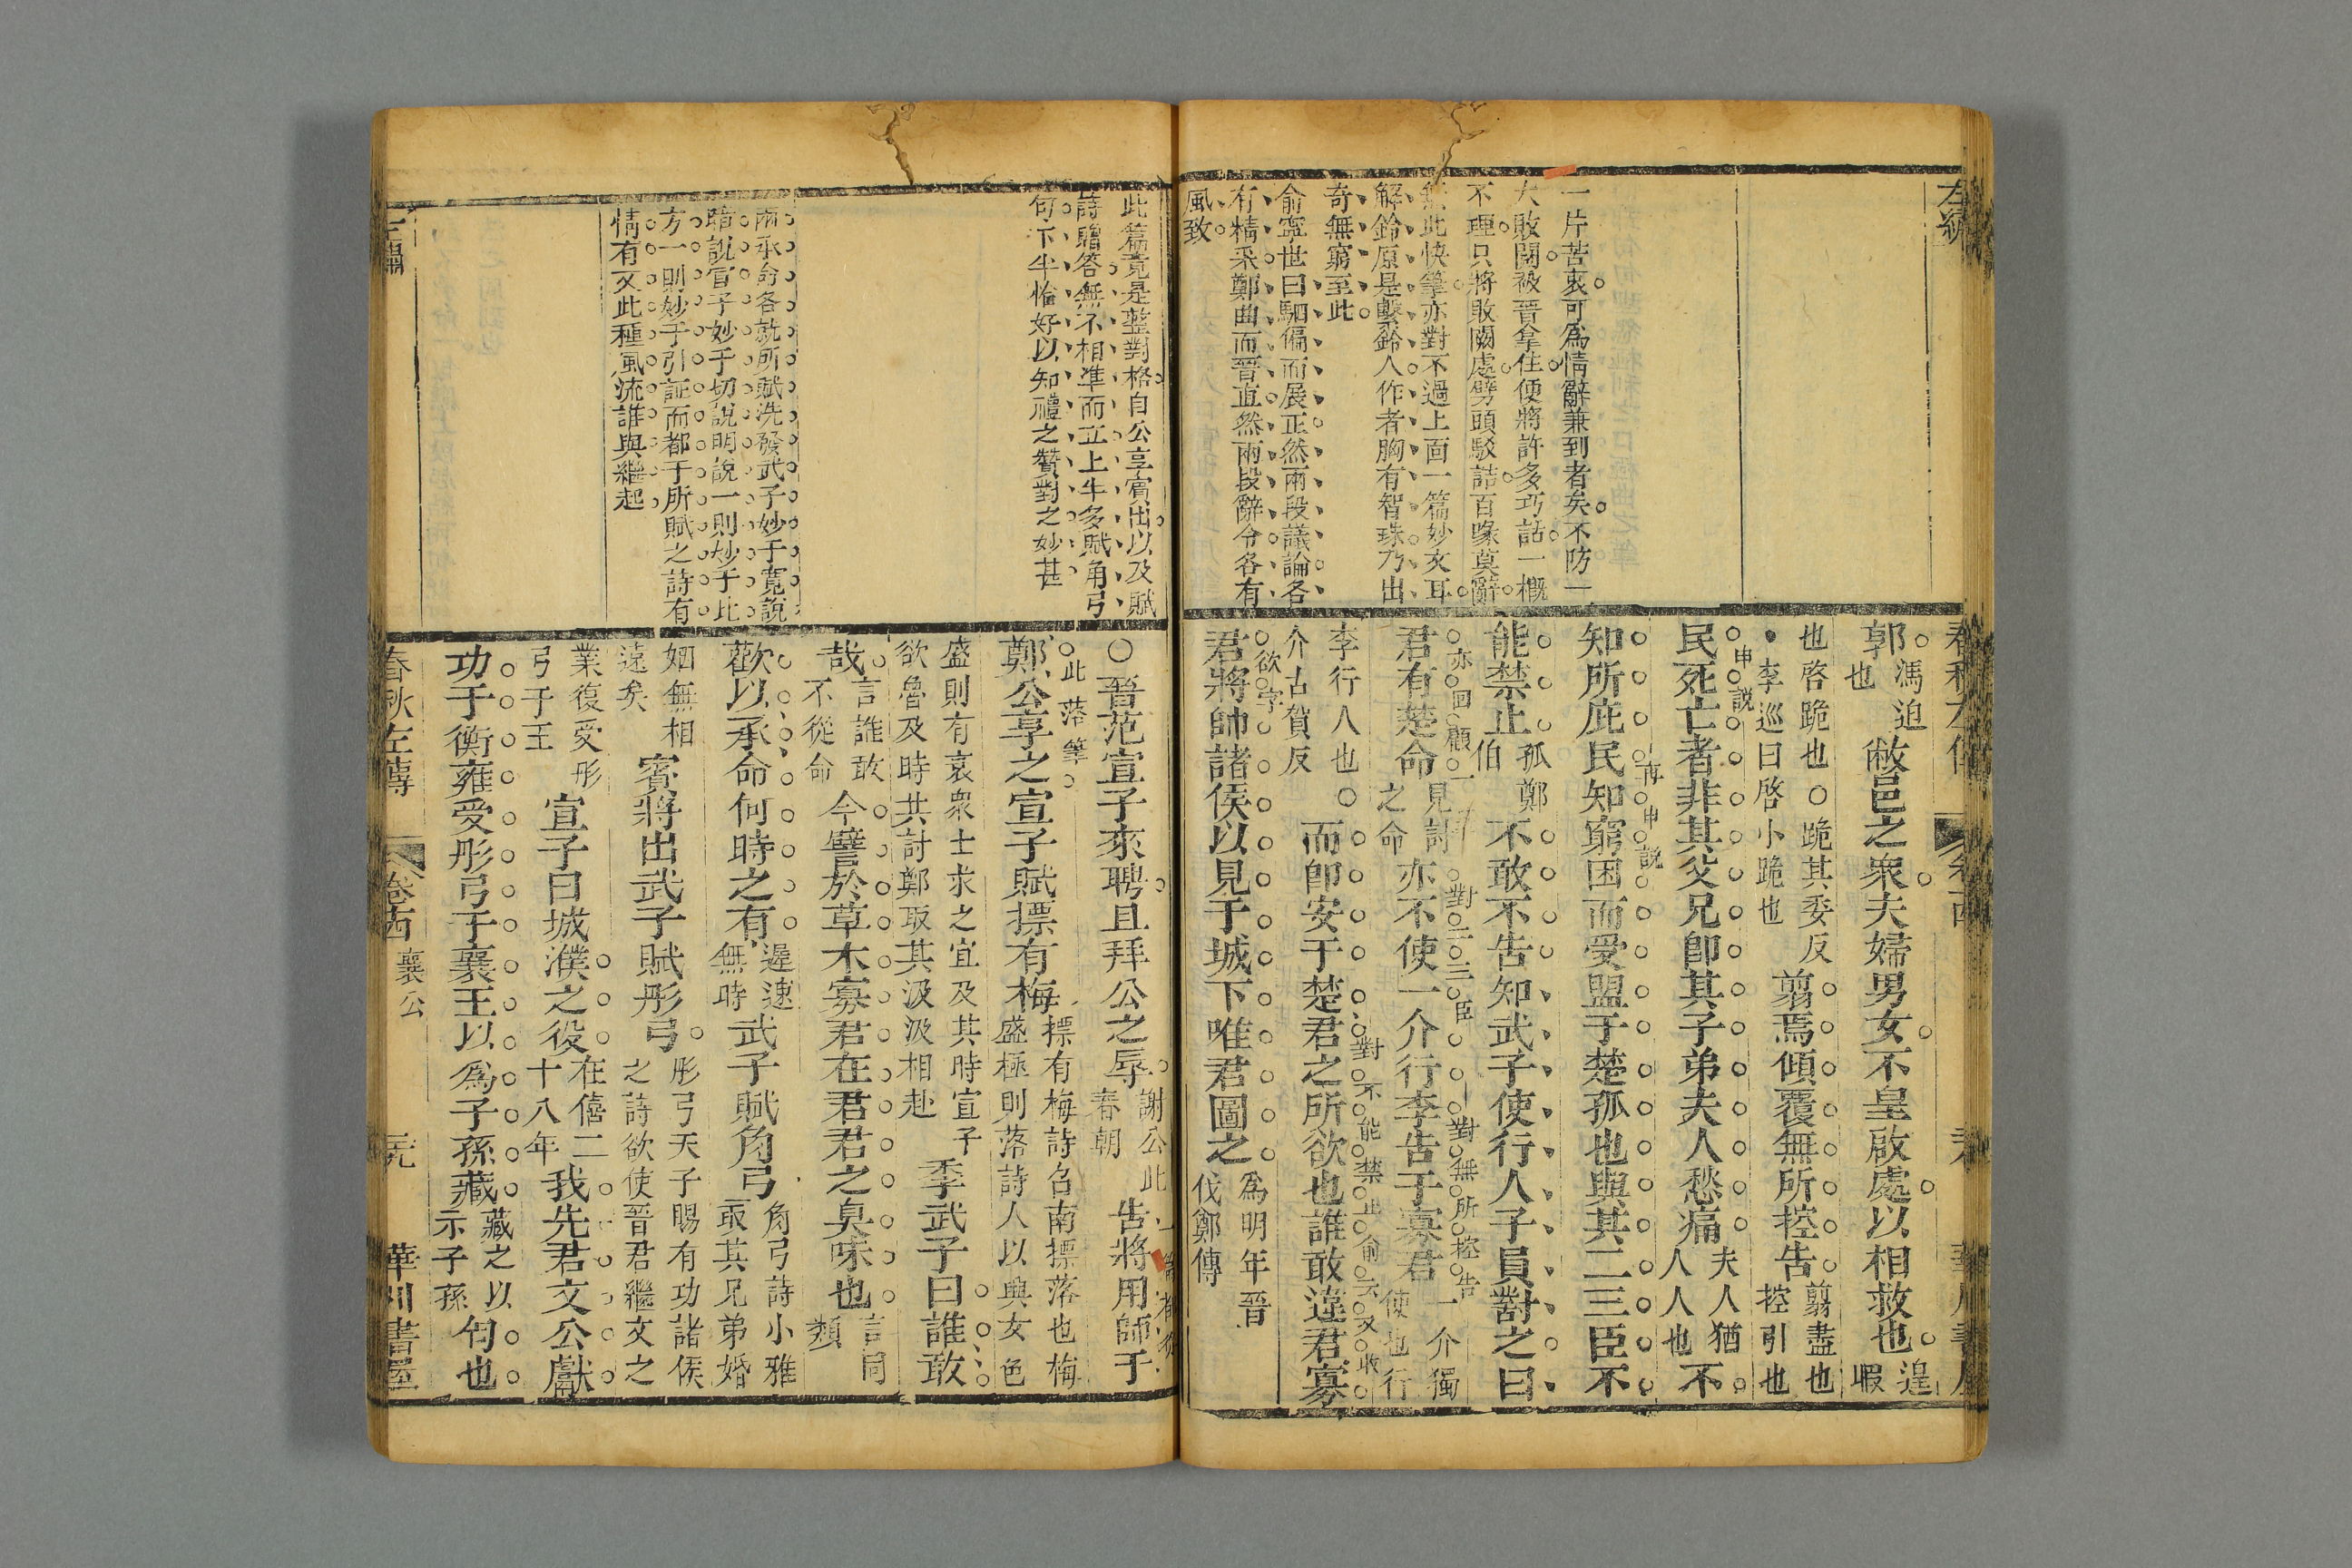 一片苦衷可為情辭兼到者矣不防一
大敗闕被晉拿住便將許多巧詁一概
不理只將敗闕處劈頭駁詰百喙莫辭
無此快筆亦對不過上面一篇妙文耳
解鈴原是繫鈴人作者胸有智珠乃出
奇無窮至此
俞寧世曰駟偪而展正然兩段議論各
有精采鄭曲而晉直然兩段辭令各有
風致
郭馮迫也敝邑之衆夫婦男女不皇啟處以相救也遑暇
也啓跪也○跪其委反李巡曰啓小跪也翦焉傾覆無所控告翦盡也控引也
民死亡者非其父兄卽其子弟夫人愁痛夫人猶人人也不
申說
知所庇民知窮困而受盟于楚孤也與其二三臣不
再申說
能禁止孤鄭伯不敢不告知武子使行人子員對之曰
君有楚命見討之命亦不使一介行李告于寡君一介獨使也行
亦回顧
對二三臣
對無所控告
李行人也○介古賀反而卽安于楚君之所欲也誰敢違君寡
對不能禁止
君將帥諸侯以見于城下唯君圖之為明年晉伐鄭傳
欲字
此篇竟是整對格自公享賓出以及賦
詩贈答無不相準而立上半多賦角弓
句下半恰好以知禮之贊對之妙甚
兩承命各就所賦洗發武子妙于寬說
暗說宣子妙于切說明說一則妙于比
方一則妙于引証而都于所賦之詩有
情有文此種風流誰與繼起
○晉范宣子來聘且拜公之辱謝公此春朝告將用師于
鄭公享之宣子賦摽有梅摽有梅詩召南摽落也梅盛極則落詩人以興女色
此落筆
盛則有衰衆士求之宜及其時宣子欲魯及時共討鄭取其汲汲相赴季武子曰誰敢
哉言誰敢不從命今譬於草木寡君在君君之臭味也言同類
歡以承命何時之有遲速無時武子賦角弓角弓詩小雅取其兄弟婚
姻無相遠矣賓將出武子賦彤弓彤弓天子賜有功諸侯之詩欲使晉君繼文之
業復受彤弓于王宣子曰城濮之役在僖二十八年我先君文公獻
功于衡雍受彤弓于襄王以為子孫藏藏之以示子孫匄也
春秋左傳
卷西
襄公
華川書屋